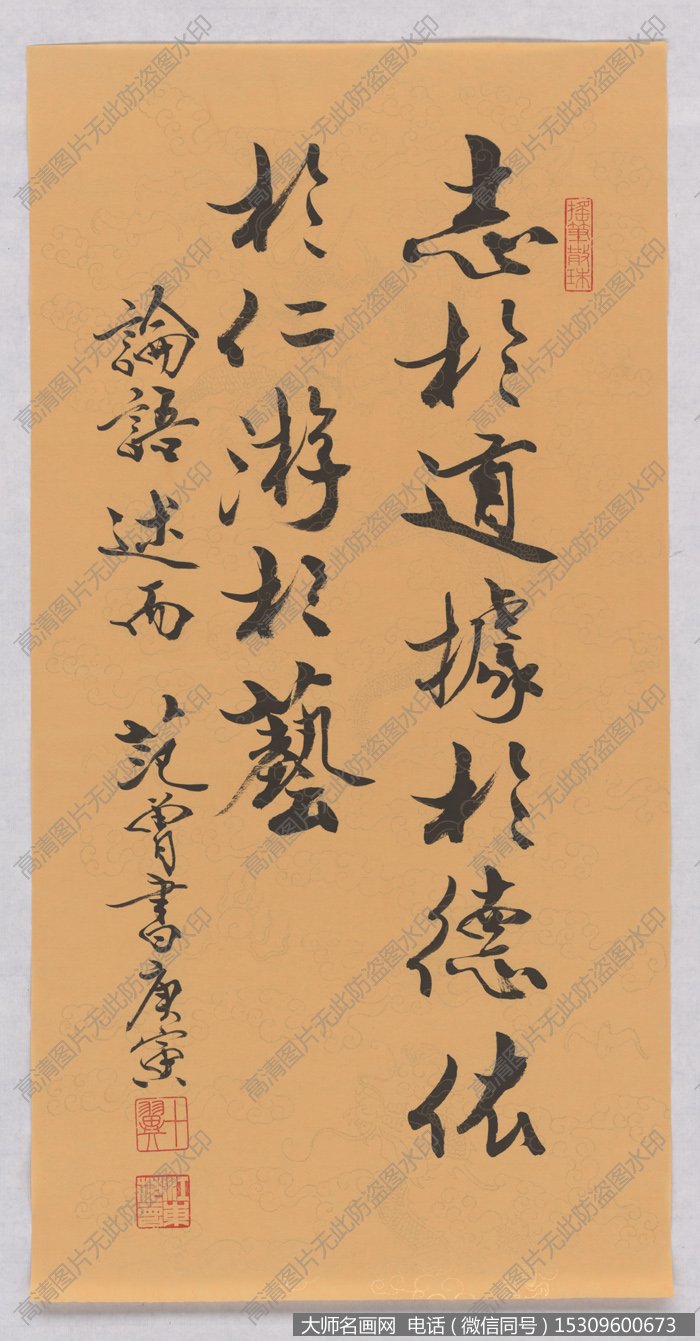 志於道據於德依
於仁游於藝
論語述而 范曾書庚寅
搖筆散珠
十翼
江東范曾
高清图片无此防盗图水印
大师名画网 电话（微信同号）15309600673